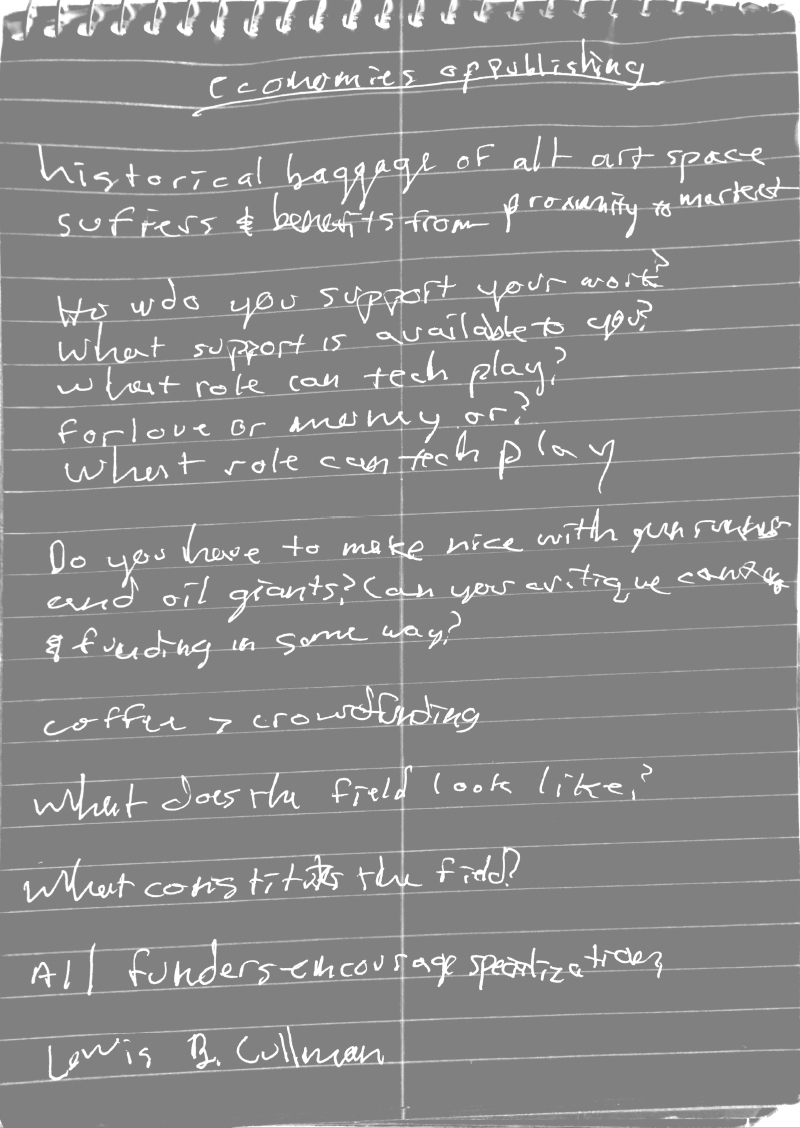 Economies of publishing
historical baggage of alt art space
suffers & benefits from proximity to market
How do you support your work?
What support is available to you?
What role can tech play?
for love or money or?
What role can tech play
Do you have to make nice with gun runners
and oil giants? Can you critique
& funding in some way?
coffee > crowdfunding
What does the field look like?
What constitutes the field?
All funders encourage specialization
Lewis B. Cullman